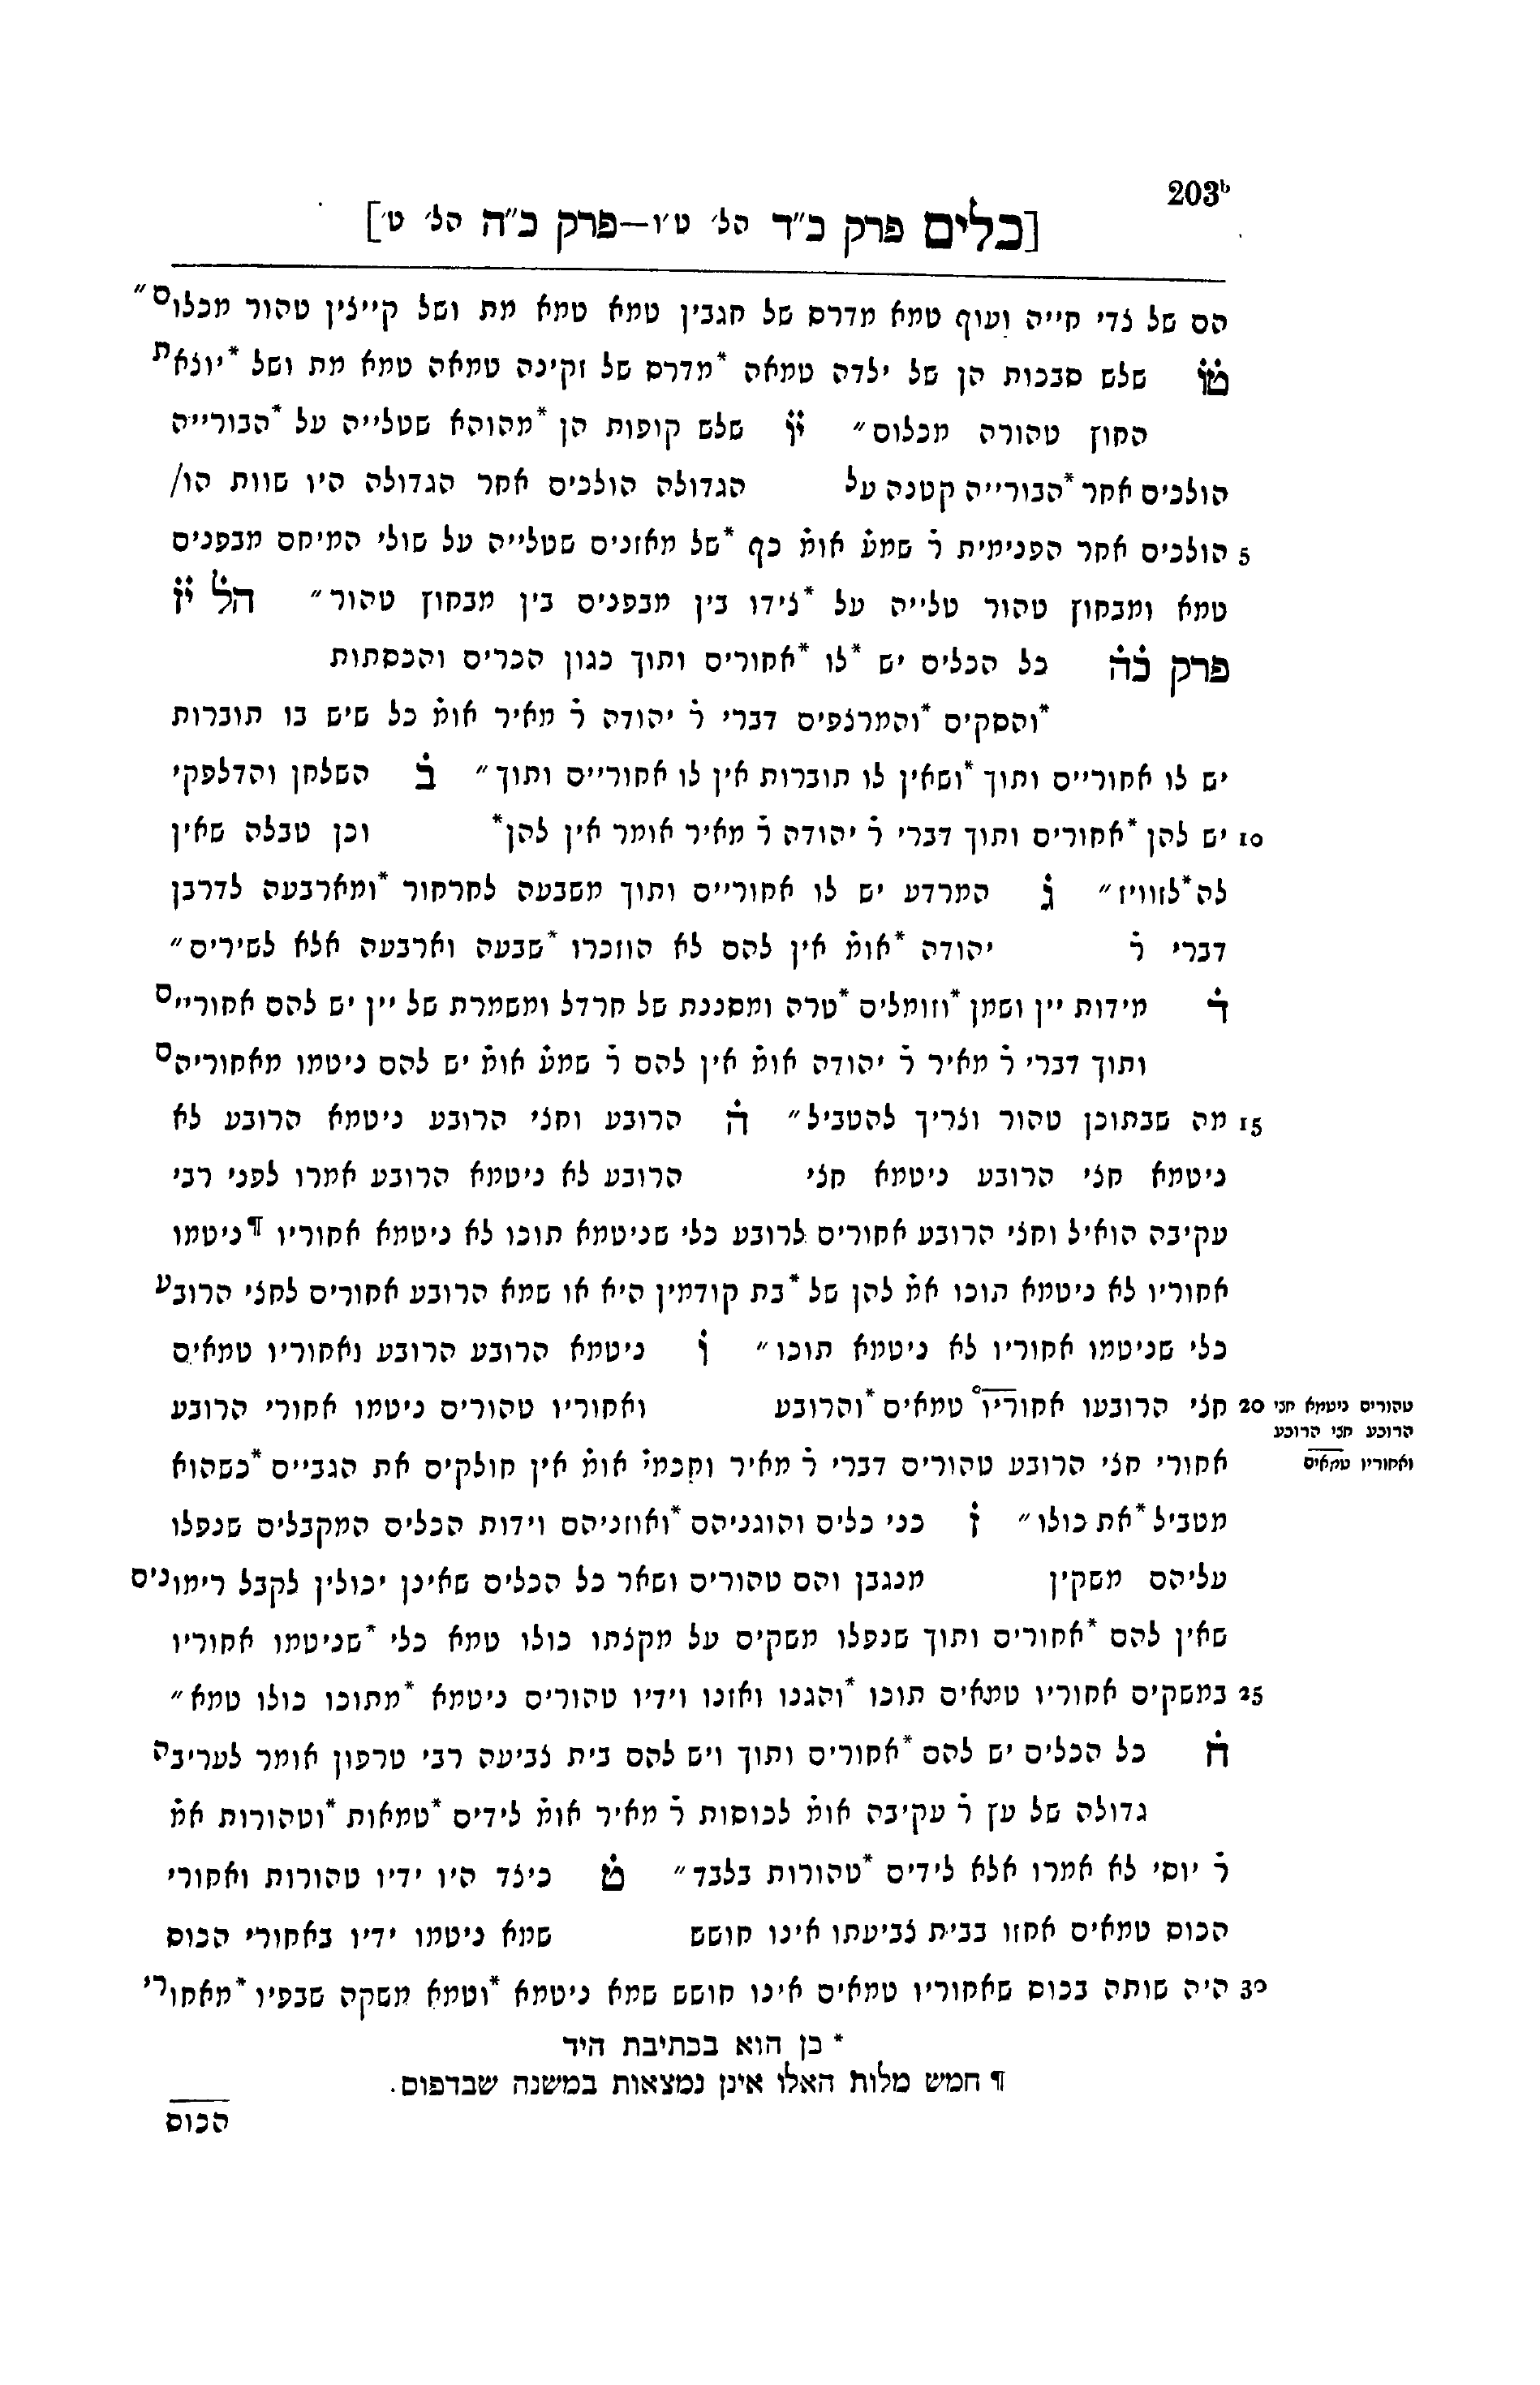 203ᵇ
[כלים פרק כ״ד הל׳ ט״ו—פרק כ״ה הל׳ ט׳]
הם של צדי חייה ועוף טמא מדרס של חגבין טמא טמא מת ושל קייצין טהור מכלום״
טו̇ שלש סבכות הן של ילדה טמאה *מדרס של זקינה טמאה טמא מת ושל *יוצאת
החוץ טהורה מכלום״ יו̇ שלש קופות הן *מהוהא שטלייה על *הבורייה
הולכים אחר *הבורייה קטנה על הגדולה הולכים אחר הגדולה היו שוות הו/
5 הולכים אחר הפנימית ר̇ שמע̇ אומ̇ כף *של מאזנים שטלייה על שולי המיחם מבפנים
טמא ומבחוץ טהור טלייה על *צידו בין מבפנים בין מבחוץ טהור״ הל̇ יז̇
פרק כ̇ה̇ כל הכלים יש *לו *אחורים ותוך כגון הכרים והכסתות
*והסקים *והמרצפים דברי ר̇ יהודה ר̇ מאיר אומ̇ כל שיש בו תוברות
יש לו אחוריים ותוך *ושאין לו תוברות אין לו אחוריים ותוך״ ב̇ השלחן והדלפקי
10 יש להן *אחורים ותוך דברי ר̇ יהודה ר̇ מאיר אומר אין להן* וכן טבלה שאין
לה *לזוויז״ ג̇ המרדע יש לו אחוריים ותוך משבעה לחרחור *ומארבעה לדרבן
דברי ר̇ יהודה *אומ̇ אין להם לא הוזכרו *שבעה וארבעה אלא לשירים״
ד̇ מידות יין ושמן *וזומלים *טרה ומסננת של חרדל ומשמרת של יין יש להם אחוריים
ותוך דברי ר̇ מאיר ר̇ יהודה אומ̇ אין להם ר̇ שמע̇ אומ̇ יש להם ניטמו מאחוריהם
15 מה שבתוכן טהור וצריך להטביל״ ה̇ הרובע וחצי הרובע ניטמא הרובע לא
ניטמא חצי הרובע ניטמא חצי הרובע לא ניטמא הרובע אמרו לפני רבי
עקיבה הואיל וחצי הרובע אחורים לרובע כלי שניטמא תוכו לא ניטמא אחוריו ¶ ניטמו
אחוריו לא ניטמא תוכו אמ̇ להן של *בת קודמין היא או שמא הרובע אחורים לחצי הרובע
כלי שניטמו אחוריו לא ניטמא תוכו״ ו̇ ניטמא הרובע הרובע ואחוריו טמאים
20 חצי הרובעו אחוריו° טמאים *והרובע ואחוריו טהורים ניטמו אחורי הרובע
טהורים ניטמא חצי
הרובע חצי הרובע
ואחוריו טמאים
אחורי חצי הרובע טהורים דברי ר̇ מאיר וחכמי̇ אומ̇ אין חולקים את הגביים *כשהוא
מטביל *את כולו״ ז̇ כני כלים והוגניהם *ואוזניהם וידות הכלים המקבלים שנפלו
עליהם משקין מנגבן והם טהורים ושאר כל הכלים שאינן יכולין לקבל רימונים
שאין להם *אחורים ותוך שנפלו משקים על מקצתו כולו טמא כלי *שניטמו אחוריו
25 במשקים אחוריו טמאים תוכו *והגנו ואזנו וידיו טהורים ניטמא *מתוכו כולו טמא״
ח̇ כל הכלים יש להם *אחורים ותוך ויש להם בית צביעה רבי טרפון אומר לעריבה
גדולה של עץ ר̇ עקיבה אומ̇ לכוסות ר̇ מאיר אומ̇ לידים *טמאות *וטהורות אמ̇
ר̇ יוסי לא אמרו אלא לידים *טהורות בלבד״ ט̇ כיצד היו ידיו טהורות ואחורי
הכוס טמאים אחזו בבית צביעתו אינו חושש שמא ניטמו ידיו באחורי הכוס
30 היה שותה בכוס שאחוריו טמאים אינו חושש שמא ניטמא *וטמא משקה שבפיו *מאחורי
* כן הוא בכתיבת היד
¶ חמש מלות האלו אינן נמצאות במשנה שבדפוס.
הכוס